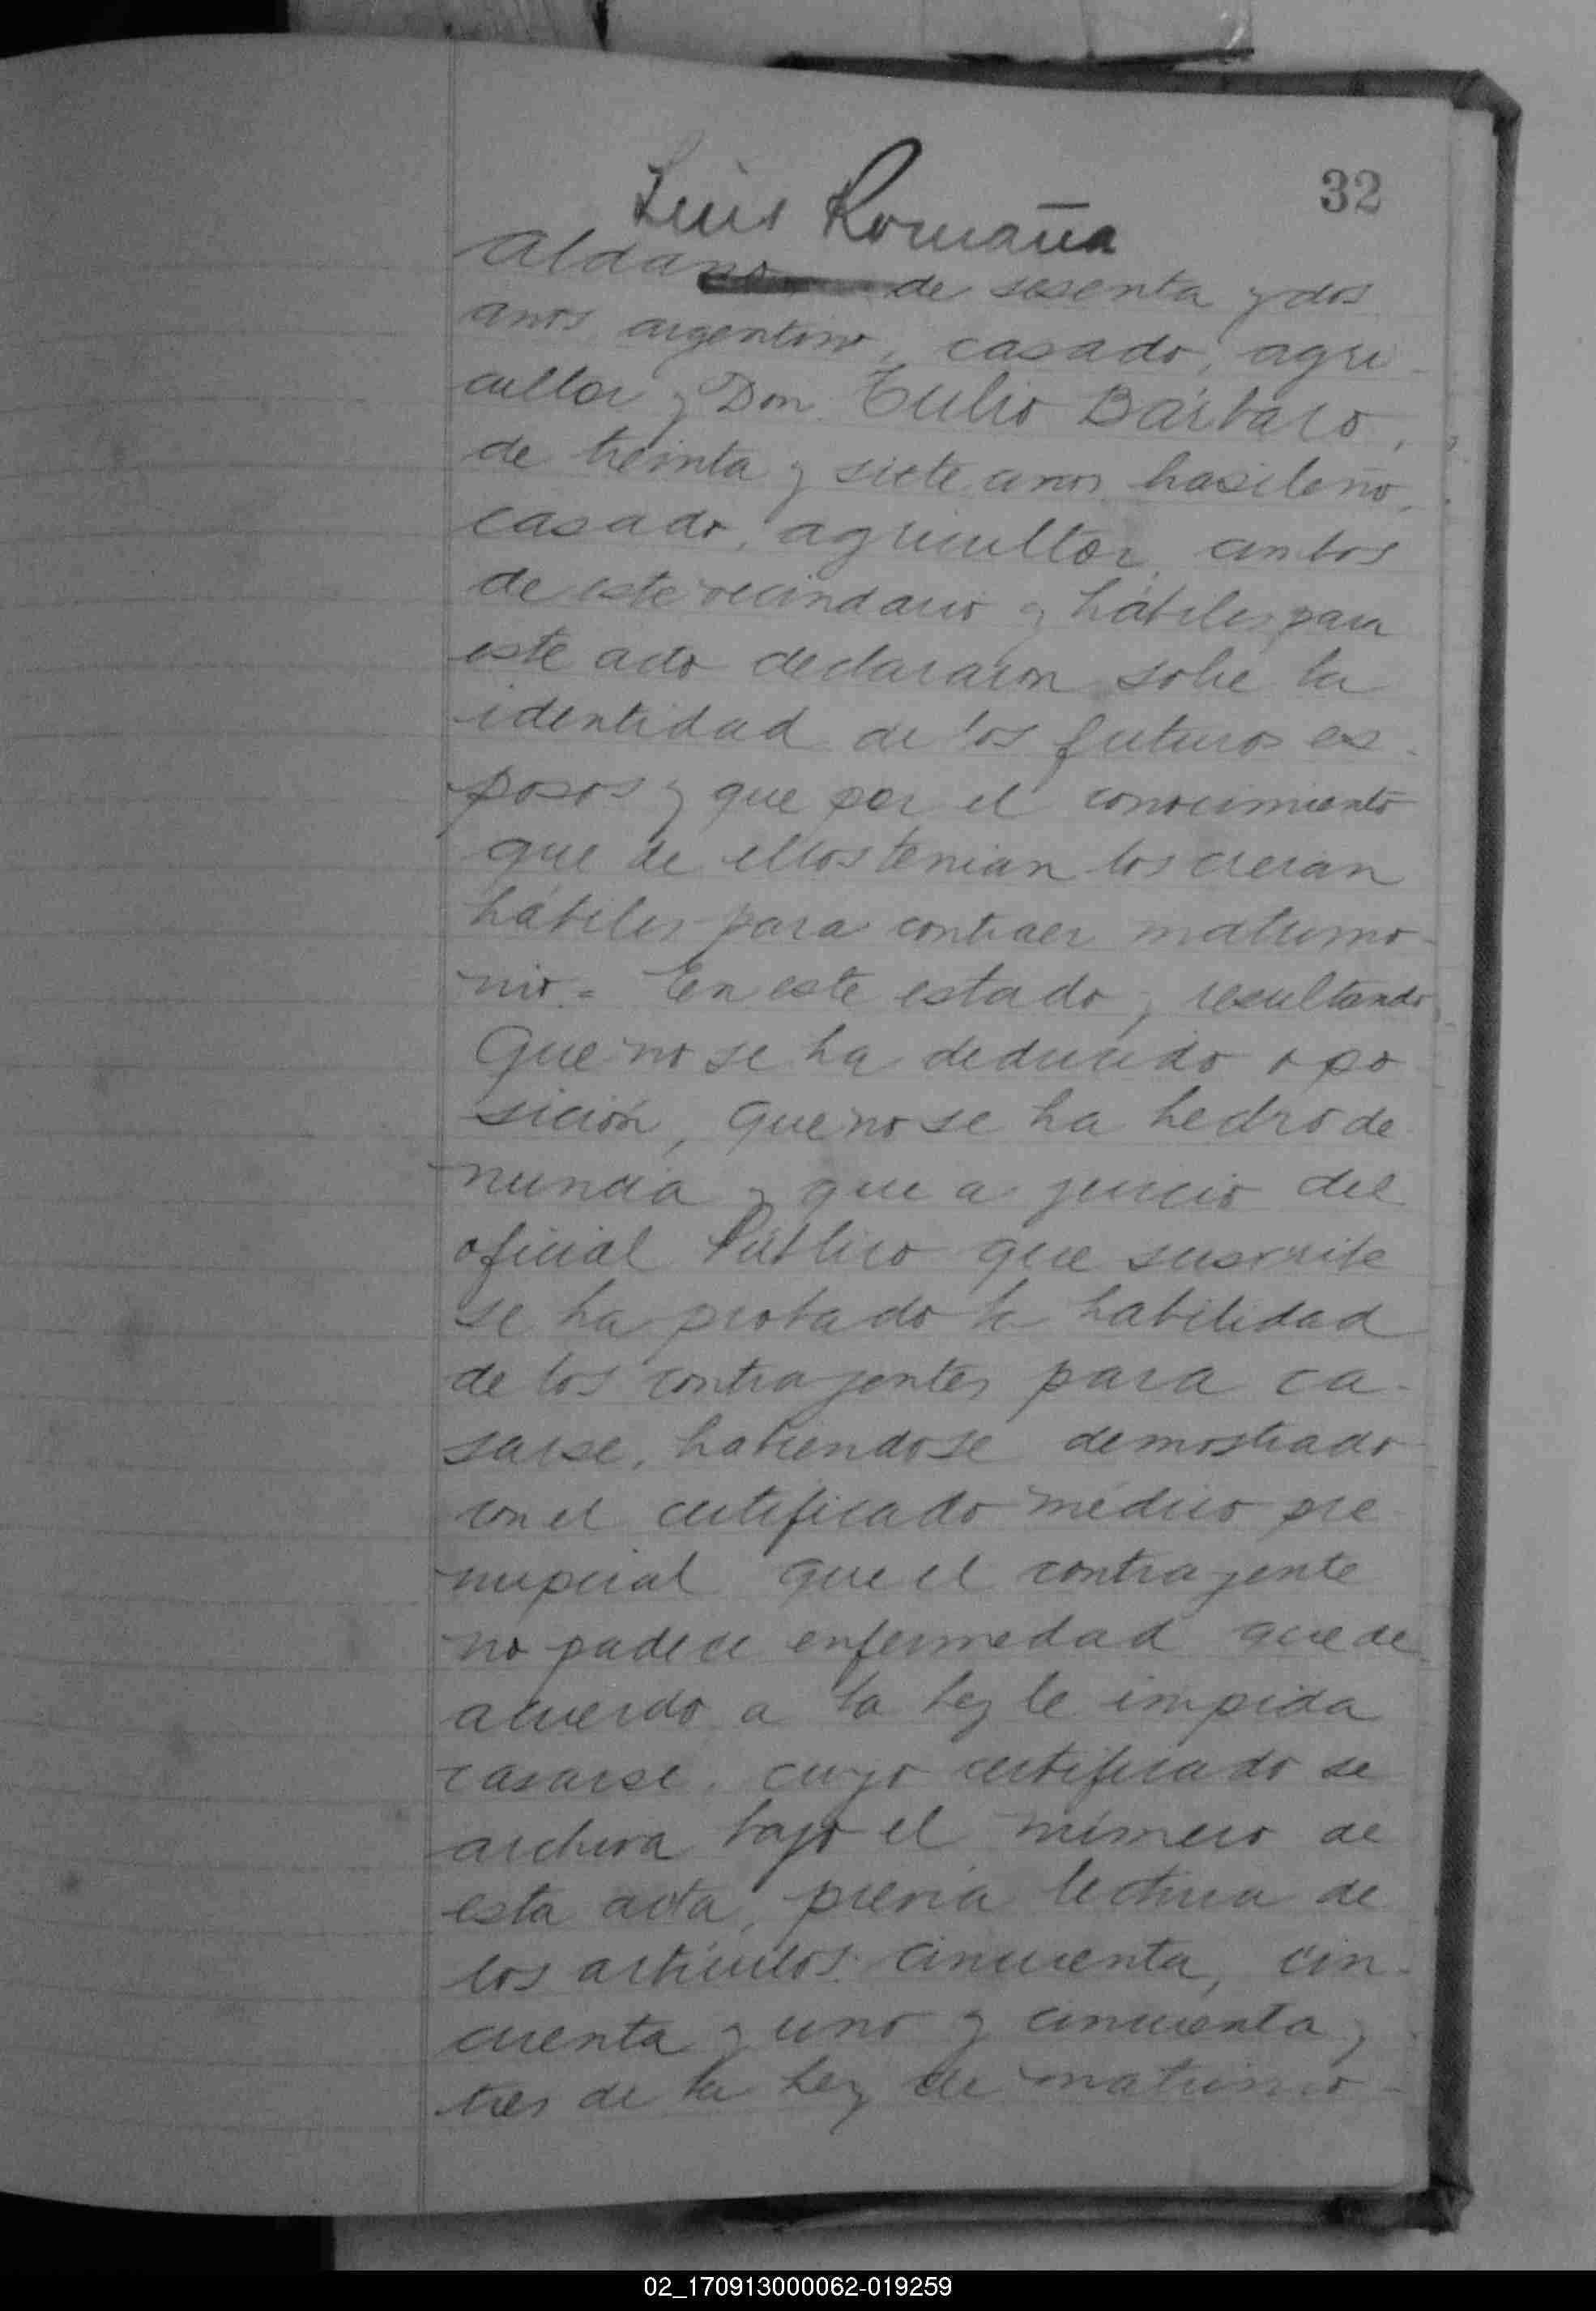 32
Luis Romaña
Aldano de sesenta y dos
años argentino, casado, agri-
cultor y Don Tulio Bárbaro,
de treinta y siete años brasileño,
casado, agricultor, ambos
de este vecindario y hábiles para
este acto declararon sobre la
identidad de los futuros es-
posos y que por el conocimiento
que de ellos tenian los creian
hábiles para contraer matrimo-
nio.= En este estado y resultando
Que no se ha deducido opo
sición, que no se ha hecho de
nuncia y que a juicio del
oficial Público que suscribe
se ha probado la habilidad
de los contrayentes para ca-
sarse, habiendose demostrado
con el certificado médico pre
nupcial que el contrayente
no padece enfermedad que de
acuerdo a la ley le impida
casarse, cuyo certificado se
archiva bajo el número de
esta acta, previa lectura de
los artículos cincuenta, cin-
cuenta y uno y cincuenta y
tres de la ley de matrimo-
02_170913000062-019259